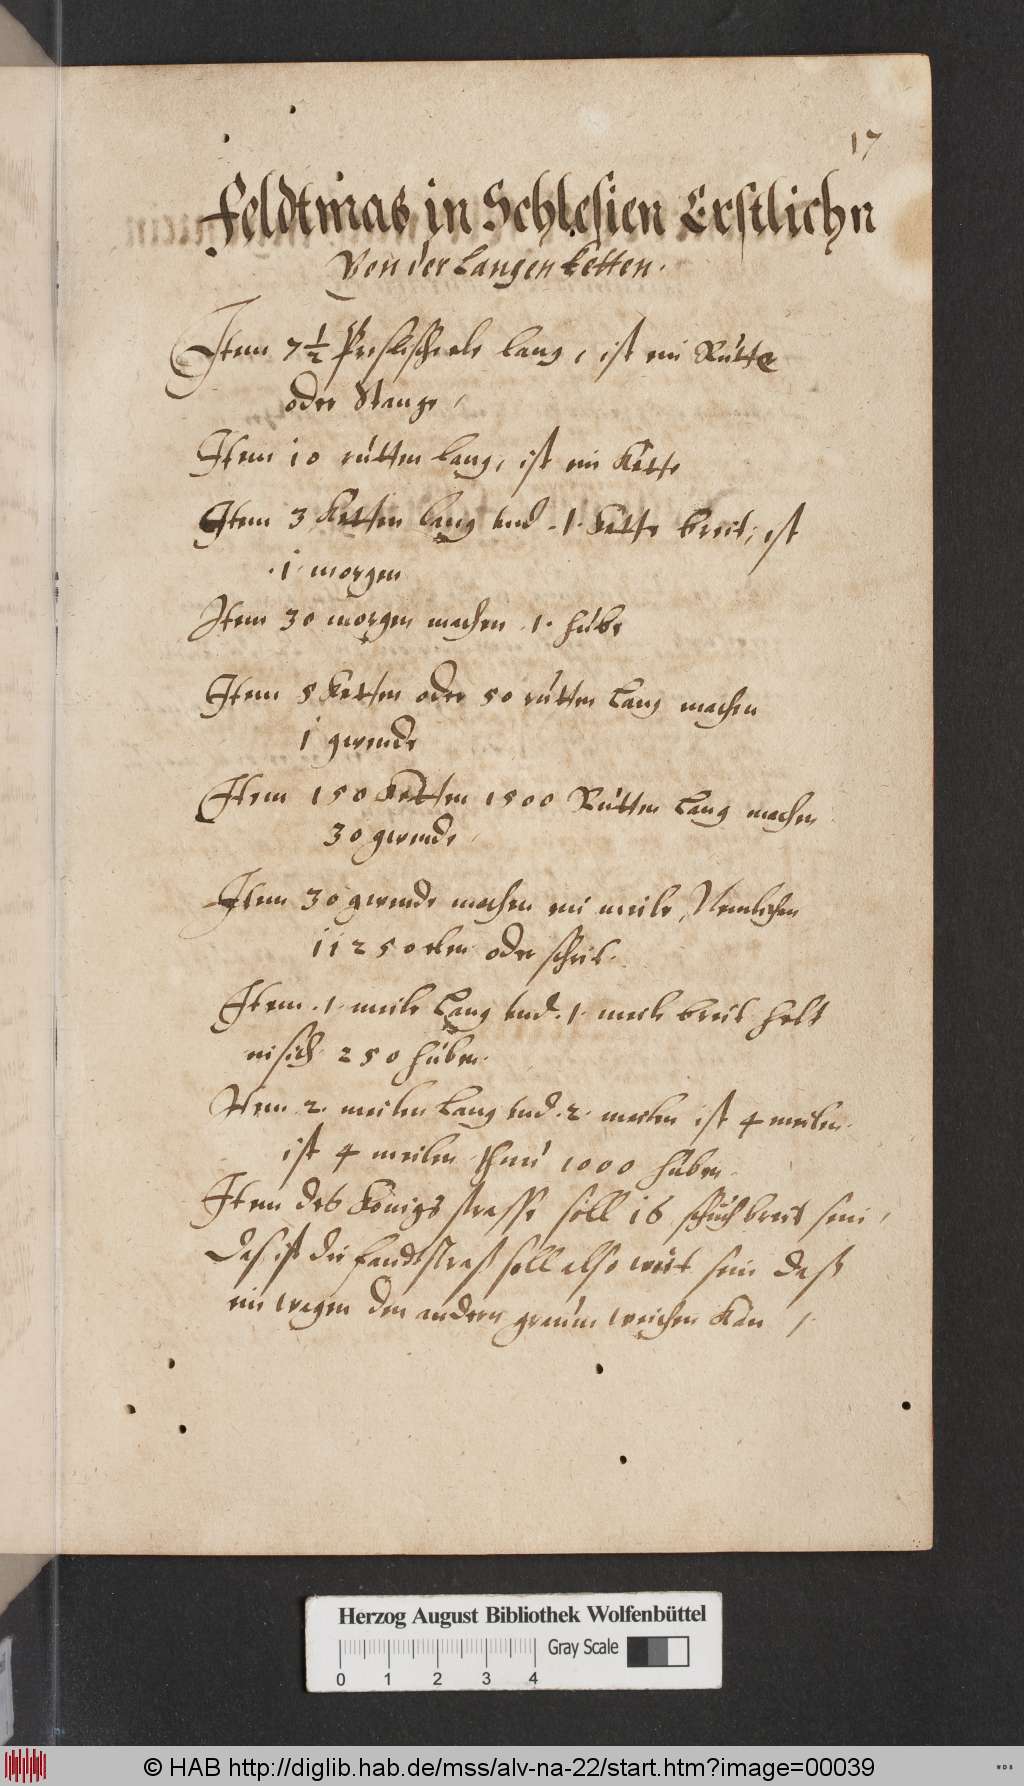 17
Feldtmas in Schlesien Erstlichn
Von der Langen Ketten.
Item 7 1/2 Preslische ele lang, ist ein Rutte
oder Stange,
Item 10 rutten lang, ist ein Kette
Item 3 Ketten lang vnd .1. Kette breit, ist
.1. morgen
Item 30 morgen machen .1. hube
Item 5 Ketten oder 50 rutten Lang machen
1 gwende
Item 150 Ketten 1500 Rutten Lang machen
30 gwende,
Item 30 gwende machen ein meile, Nemlichen
11250 elen oder schrit.
Item .1. meile Lang vnd .1. meile breit helt
in sich 250 huben.
Item 2. meilen Lang vnd .2. meilen ist 4 meilen.
ist 4 meilen thun 1000 huben.
Item des Königs strasse soll 16 schuch breit sein,
Das ist die Landtstraß soll also weit sein daß
ein wagen dem andern graum weichen kan ,
Herzog August Bibliothek Wolfenbüttel
Gray Scale
0 1 2 3 4
© HAB http://diglib.hab.de/mss/alv-na-22/start.htm?image=00039